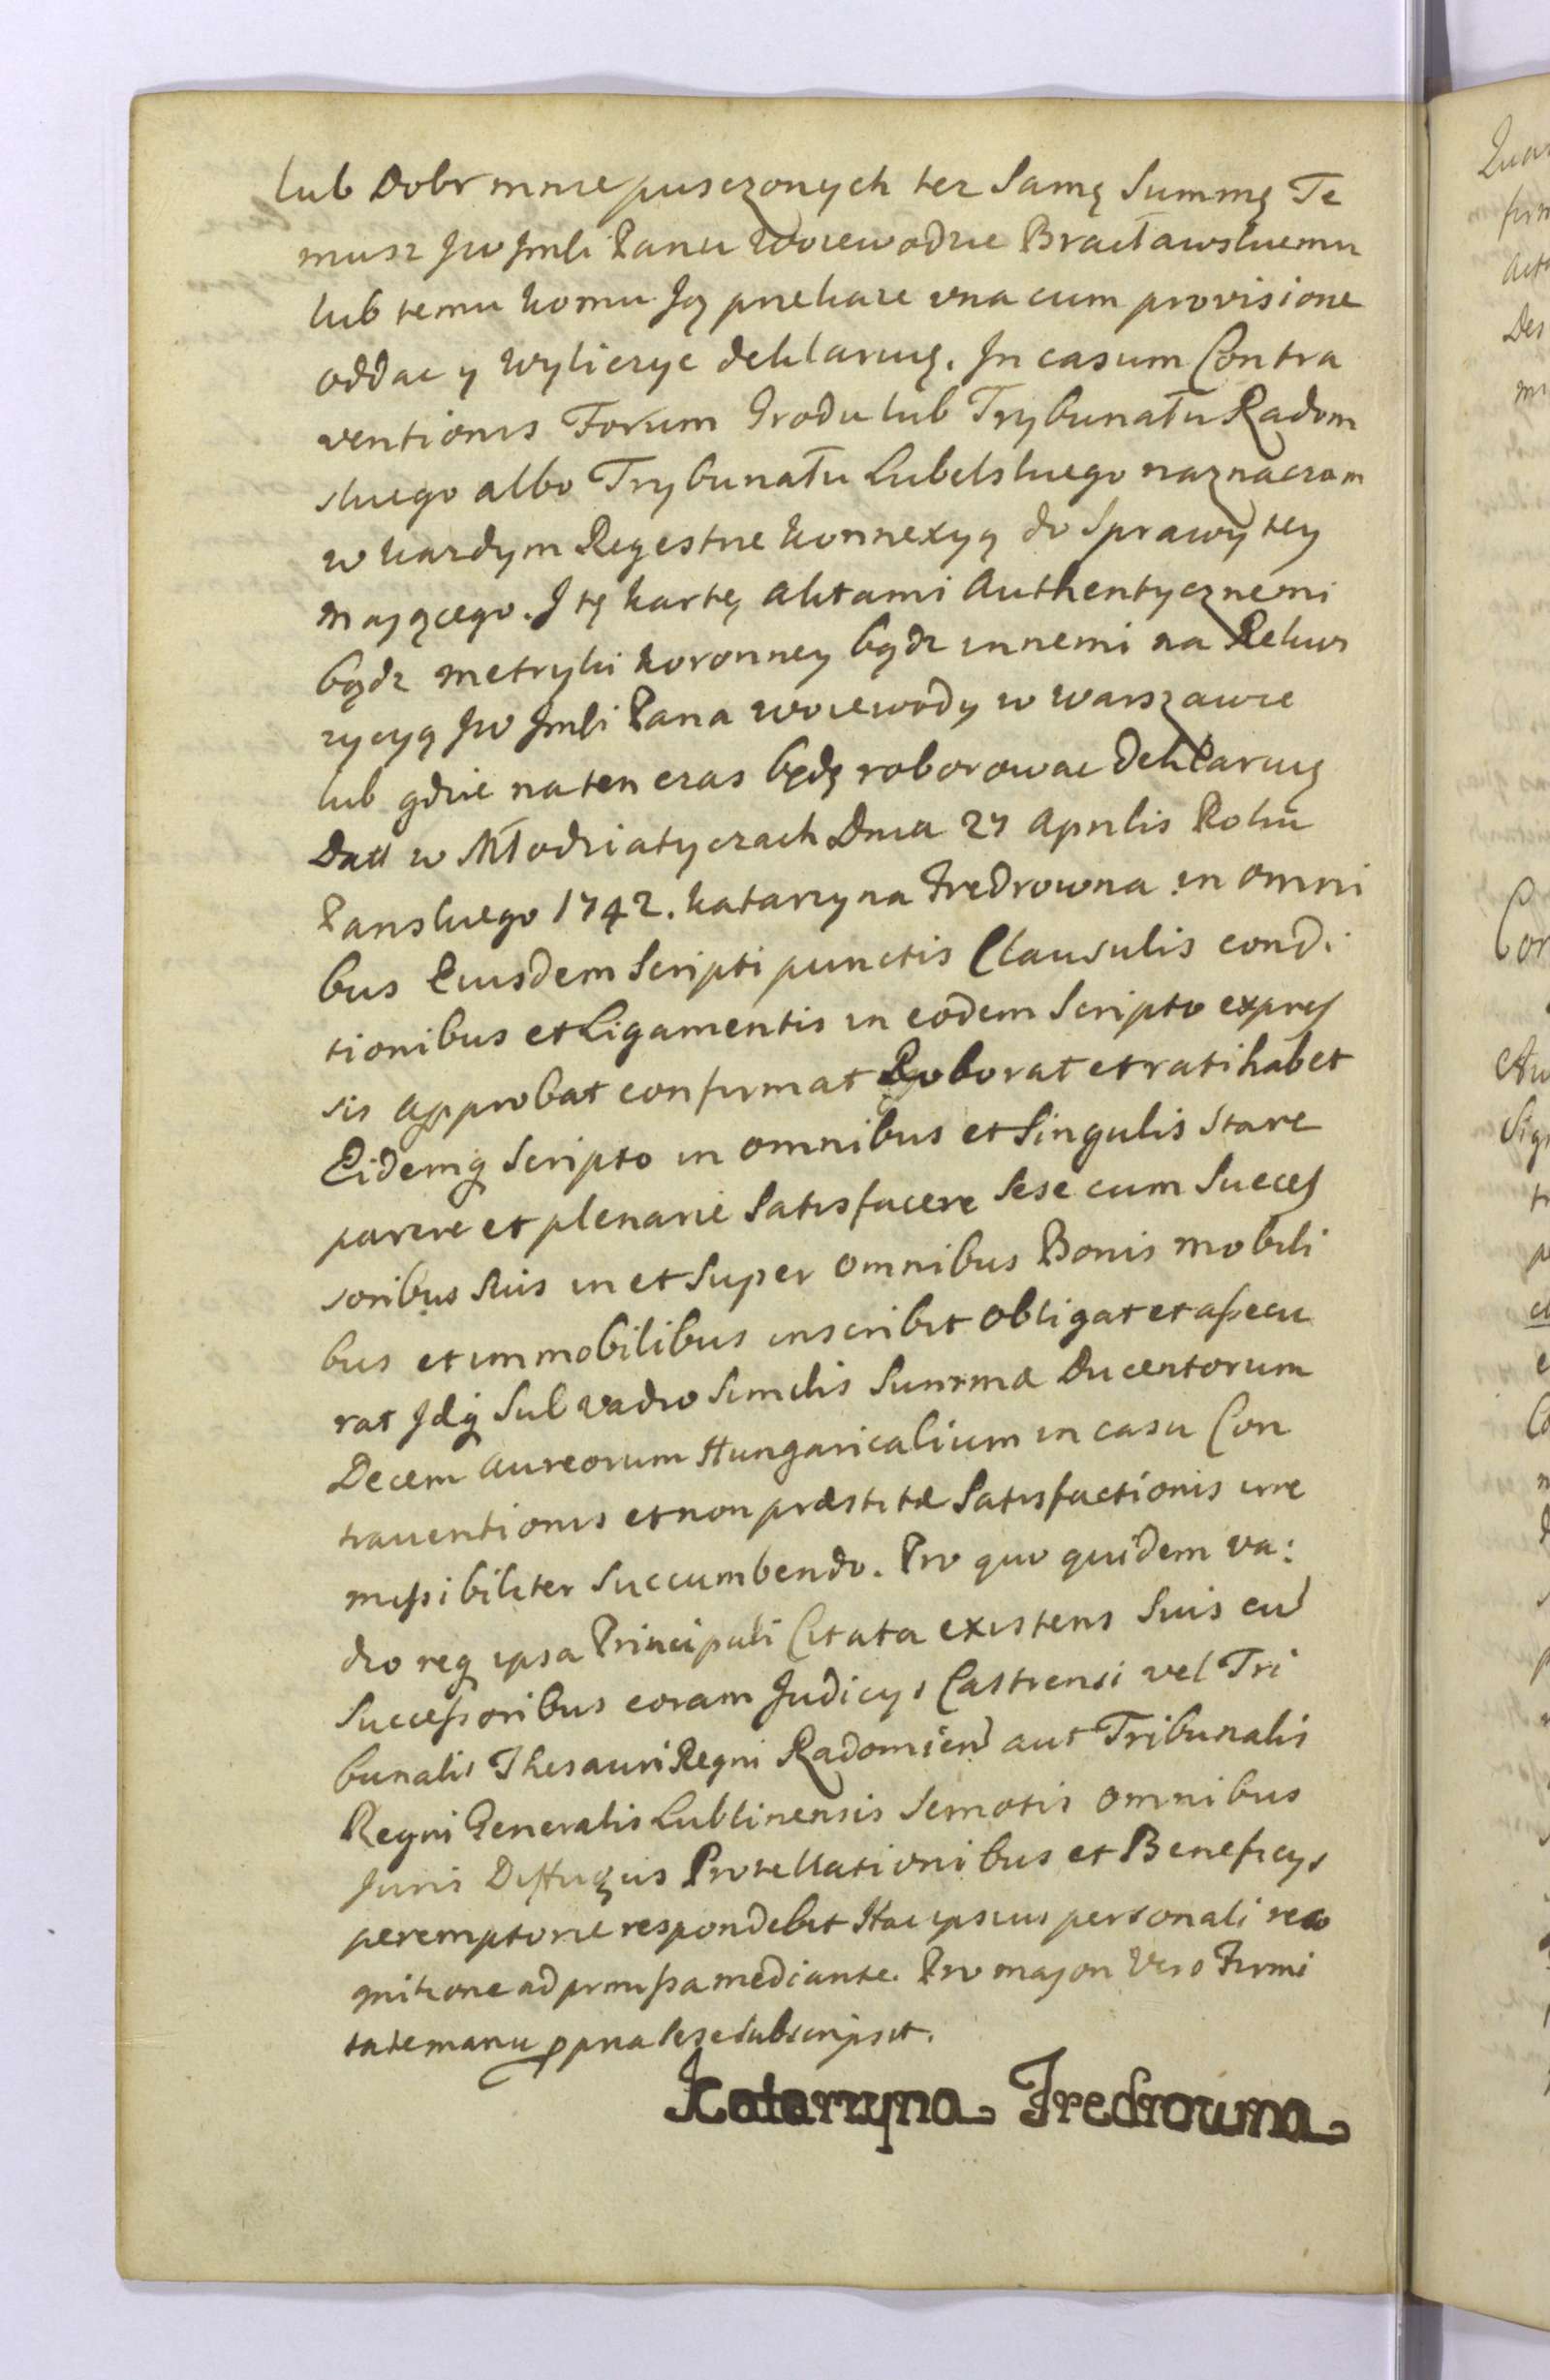 lub Dobr mnie pusczonych tez Samę Summę Te
musz Jw Jmći Panu Woiewodzie Bracławskiemu
lub temu komu Ją przekaze una cum provisione
oddac y Wyliczyc deklaruię. In casum Contra
ventionis Forum Grodu lub Trybunału Radom
skiego albo Trybunału Lubelskiego naznaczam
w kazdym Regestrze konnexyą do Sprawy tey
maiącego. I tę kartę, aktami Authentycznemi
bądz metryki koronney bądz innemi na Rekwi
zycyą Jw Jmći Pana woiewody w Warszawie
lub gdzie na ten czas będę roborowac deklaruię
Datt w Młodziatyczach Dnia 27 Aprilis Roku
Panskiego 1742. Katarzyna Fredrowna in omni
bus Eiusdem Scripti punctis Clausulis condi
tionibus et Ligamentis in eodem Scripto expres
sis approbat confirmat Roborat et ratihabet
Eidemq Scripto in omnibus et Singulis Stare
parere et plenarie Satisfacere Sese cum Succes
soribus Suis in et Super omnibus Bonis mobili
bus et immobilibus inscribit obligat et assecu
rat Idq Sub vadio Similis Summæ Ducentorum
Decem aureorum Hungaricalium in casu Con
traventionis et non præstitæ Satisfactionis irre
missibiliter Succumbendo. Pro quo quidem va:
dio req ipsa Principali Citata existens Suis cu
Successoribus coram Judicys Castrensi vel Tri
bunalis Thesauri Regni Radomien aut Tribunalis
Regni Generalis Lublinensis Semotis omnibus
Juris Diffugiis Protellationibus et Beneficys
peremptorie respondebit Hac ipsius personali reco
gnitione ad prmissa mediante. Pro majori Vero Firmi
tate manu ppria Sese Subscripsit.
Katarzyna Fredrowna